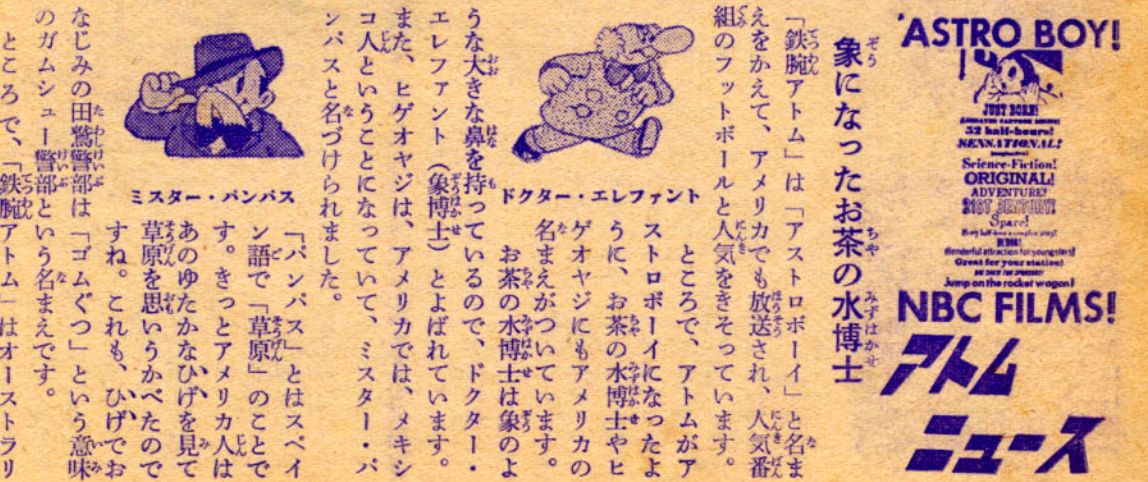 'ASTRO BOY!
JUST BORN!
ANIMATED CARTOON SERIES!
32 half-hours!
SENSATIONAL!
Science-Fiction!
ORIGINAL!
ADVENTURE!
21ST CENTURY!
Space!
Every half-hour a complete story!
Wonderful attraction for youngsters!
Great for your station!
Jump on the rocket wagon!
NBC FILMS!
アトム
ニュース
象になったお茶の水博士
「鉄腕アトム」は「アストロボーイ」と名ま
えをかえて、アメリカでも放送され、人気番
組のフットボールと人気をきそっています。
ところで、アトムがア
ストロボーイになったよ
うに、お茶の水博士やヒ
ゲオヤジにもアメリカの
名まえがついています。
お茶の水博士は象のよ
うな大きな鼻を持っているので、ドクター・
エレファント（象博士）とよばれています。
また、ヒゲオヤジは、アメリカでは、メキシ
コ人ということになっていて、ミスター・パ
ンパスと名づけられました。
ドクター・エレファント
「パンパス」とはスペイ
ン語で「草原」のことで
す。きっとアメリカ人は
あのゆたかなひげを見て
草原を思いうかべたので
すね。これも、ひげでお
なじみの田鷲警部は「ゴムぐつ」という意味
のガムシュー警部という名まえです。
ミスター・パンパス
ところで、「鉄腕アトム」はオーストラリ